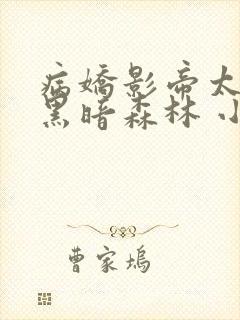 病嬌影帝太
黑暗森林 小
曹家塢